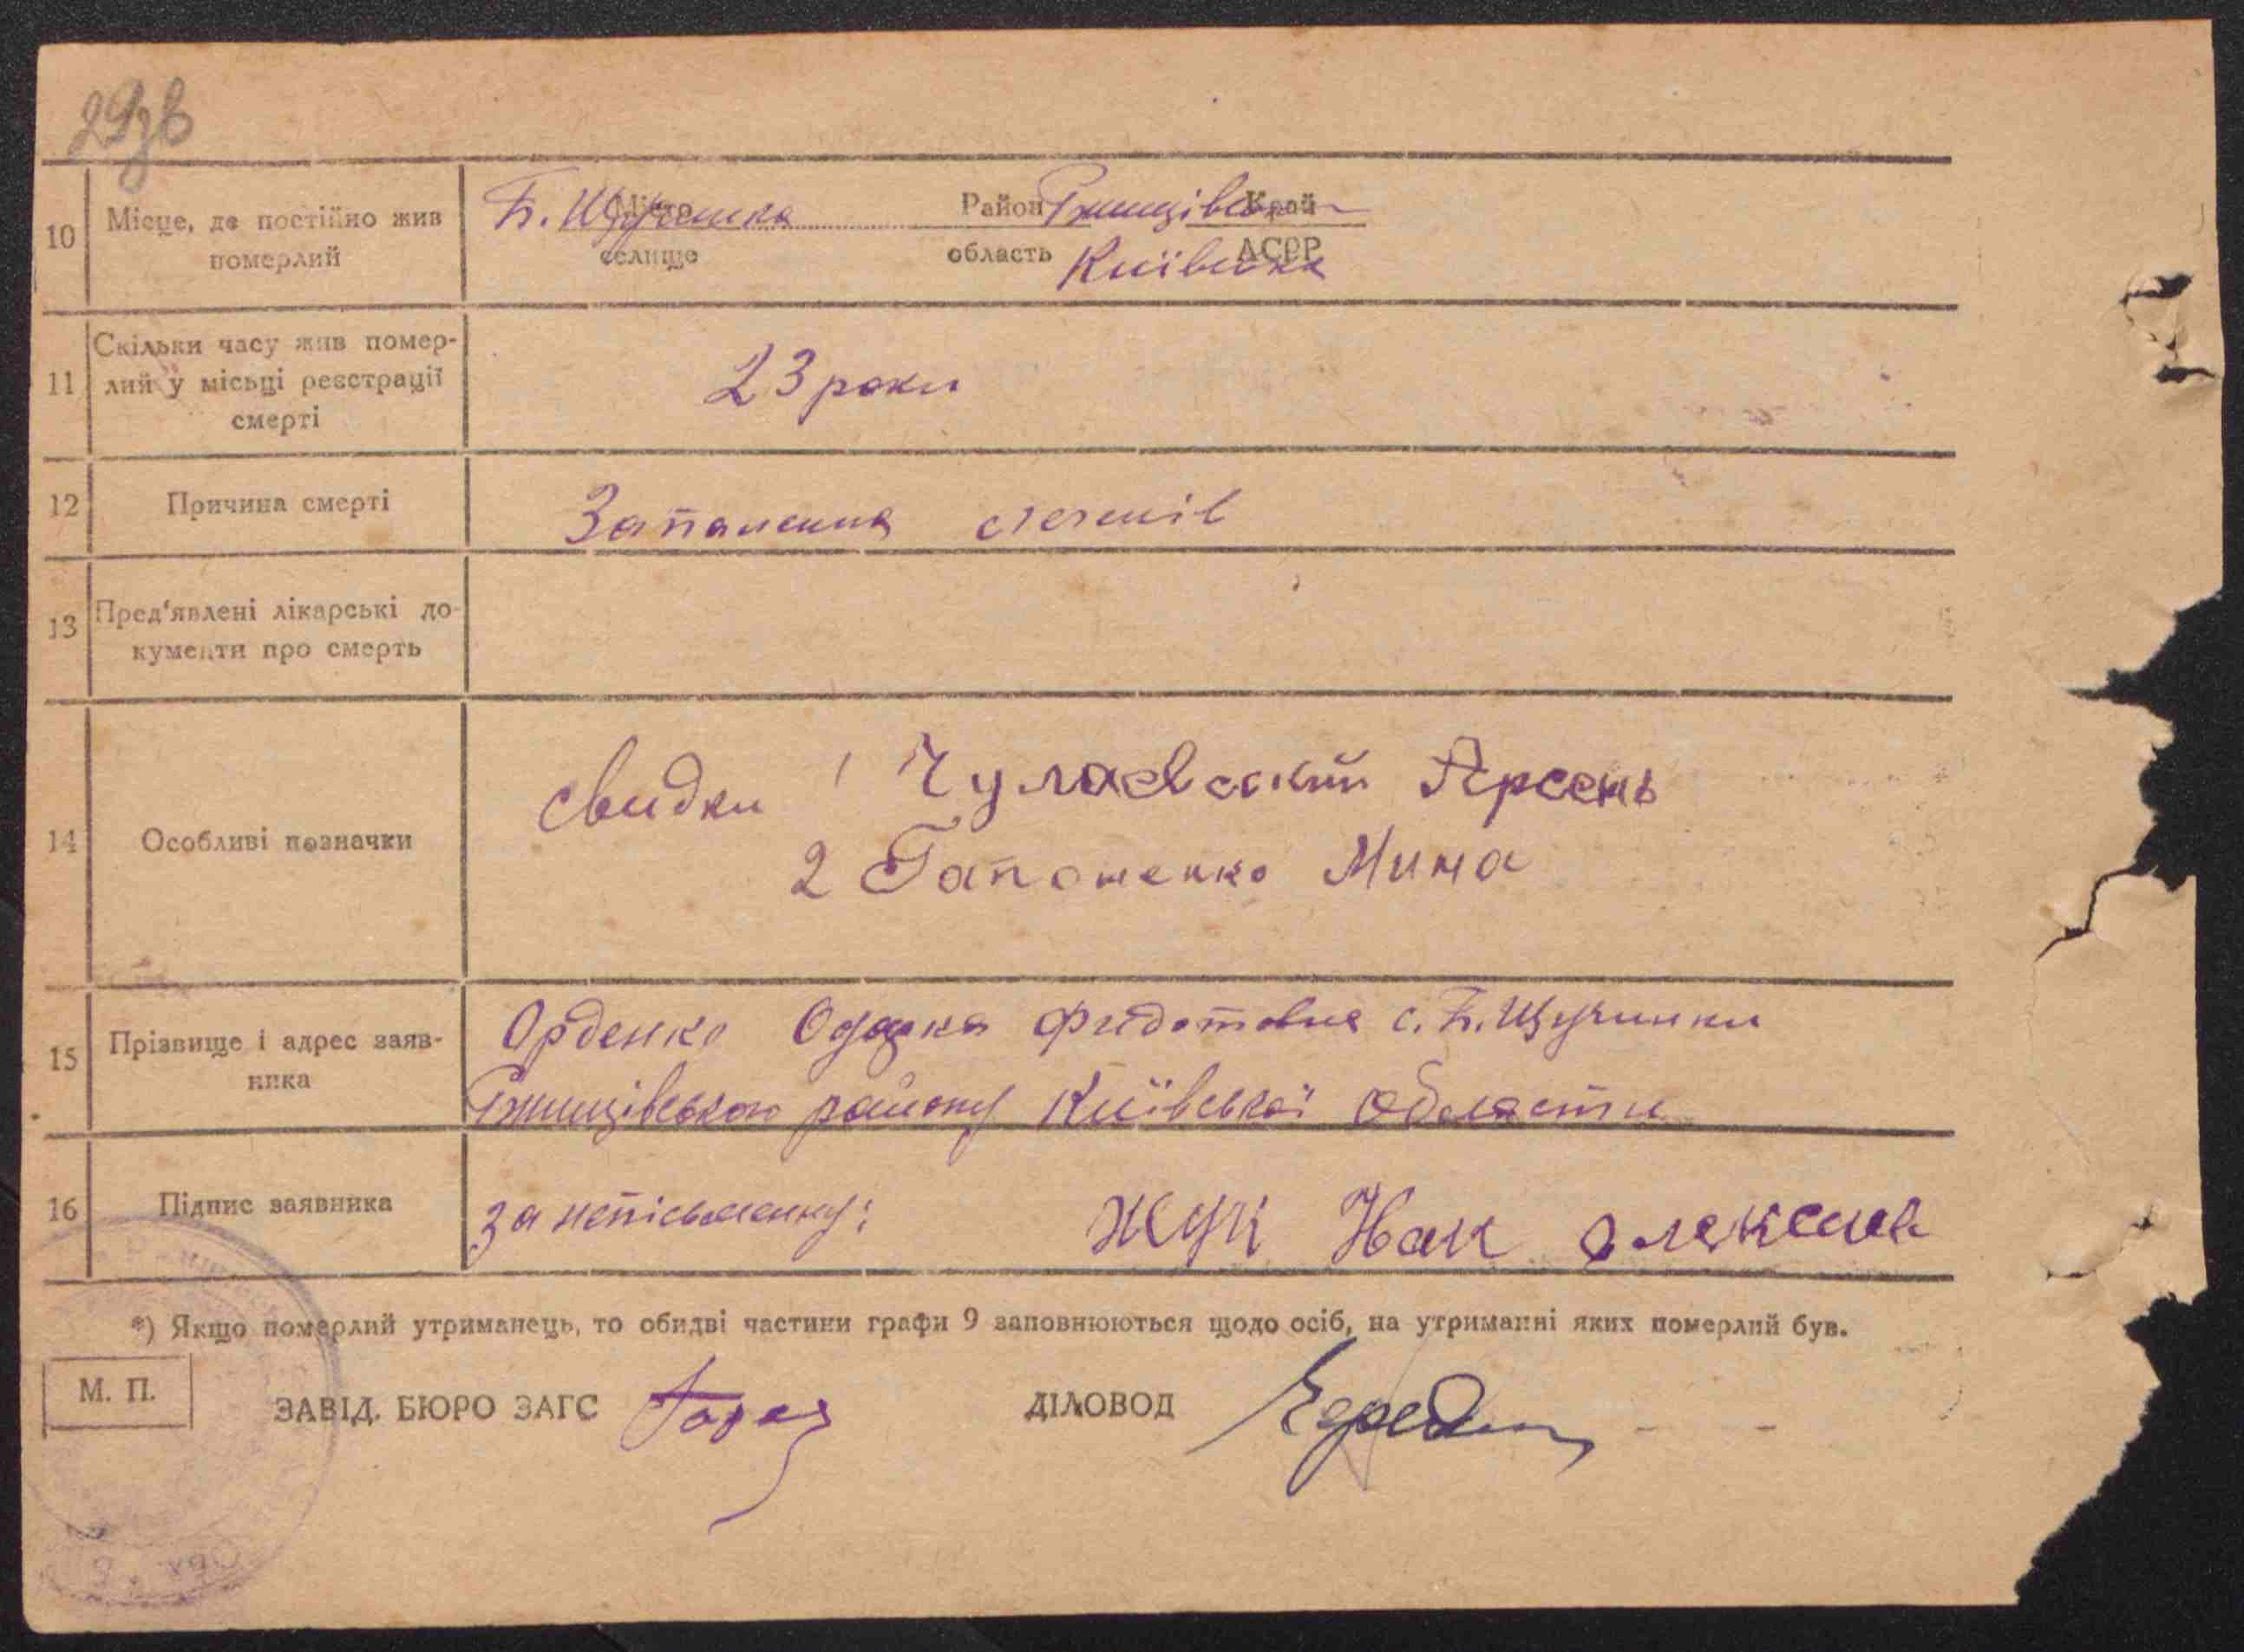 29зв
10 Місце, де постійно жив померлий
Б. Щучинка Місто селище Район Ржищівський Край
область Київська АСРР
11 Скільки часу жив помер-
лий у місьці реєстрації
смерті
23 роки
12 Причина смерті
Запалення легенів
13 Пред'явлені лікарські до-
кументи про смерть
14 Особливі позначки
свидки 1 Чулаевский Арсень
2 Гапоненко Мина
15 Прізвище і адрес заяв-
ника
Орденко Одарка Фидотовна с. Б. Щучинки
Ржищівського району Київської области
16 Підпис заявника
за непісьменну: Жук
*) Якщо померлий утриманець, то обидві частини графи 9 заповнюються щодо осіб, на утриманні яких померлий був.
М. П.
ЗАВІД. БЮРО ЗАГС
ДІЛОВОД